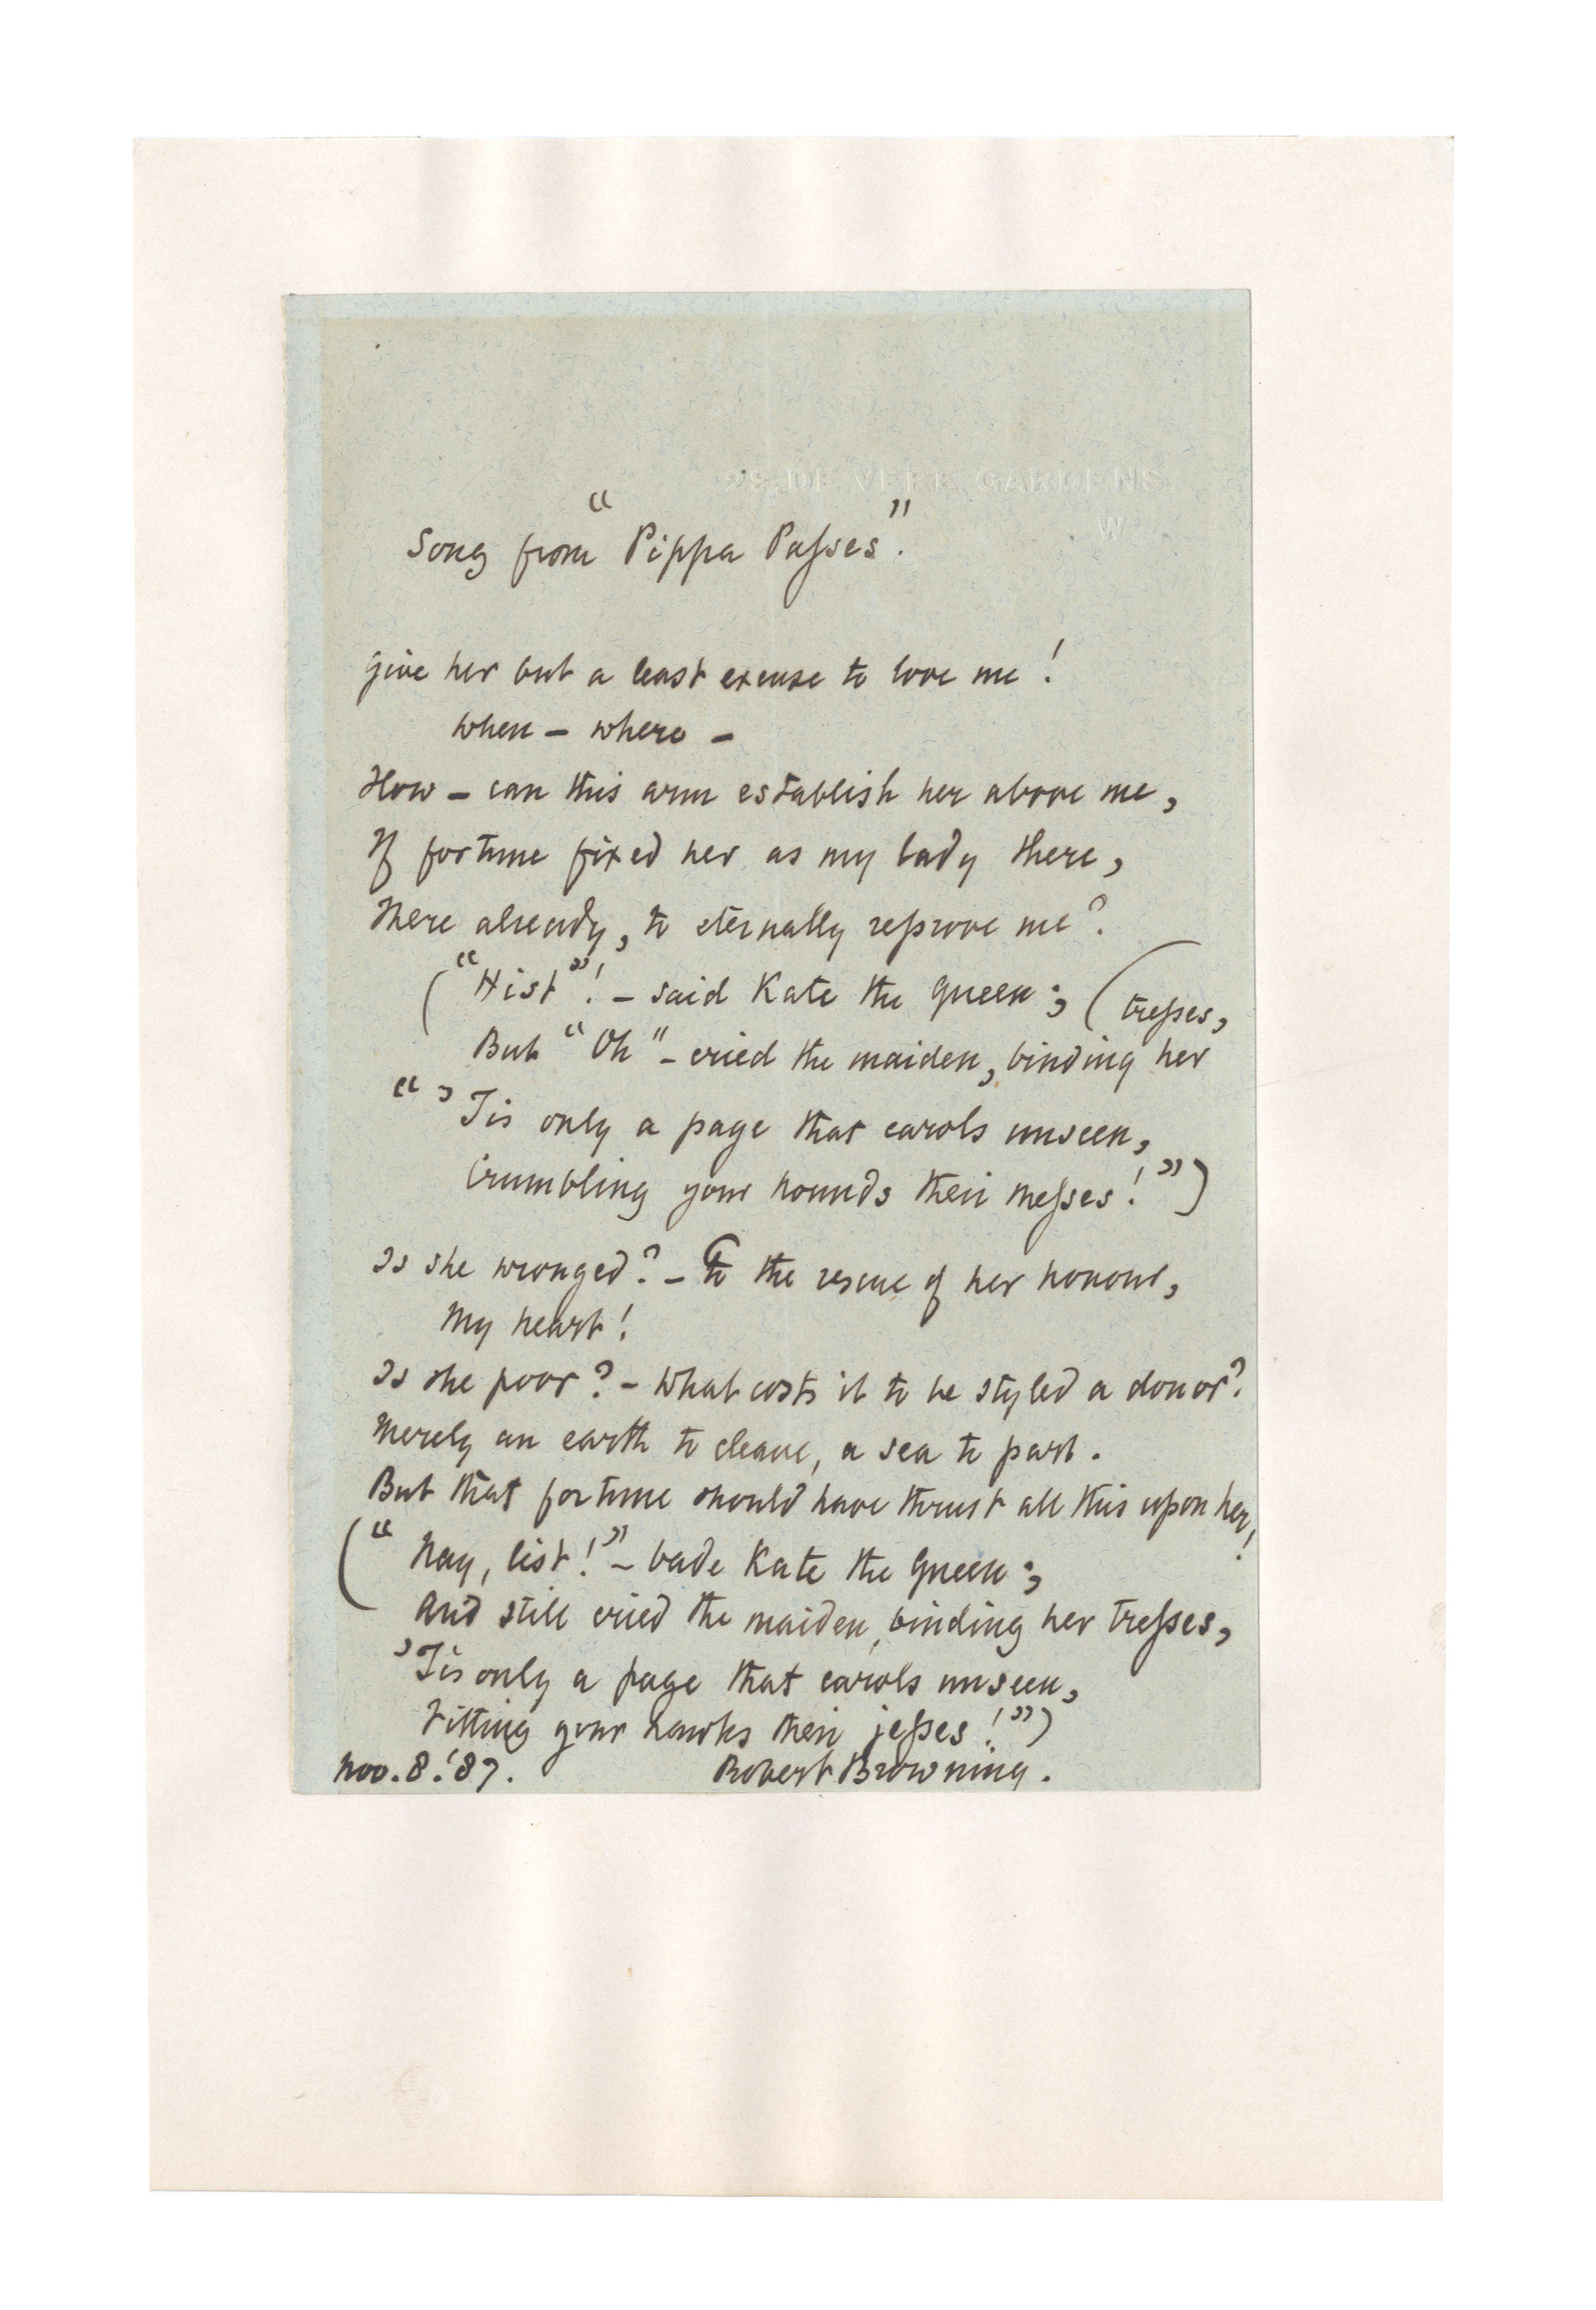 29, DE VERE GARDENS.
W.
Song from "Pippa Passes".
Give her but a least excuse to love me!
When — where —
How — can this arm establish her above me,
If fortune fixed her as my lady there,
There already, to eternally reprove me?
("Hist"! — said Kate the Queen;
But "Oh" — cried the maiden, binding her (tresses,
"'Tis only a page that carols unseen,
Crumbling your hounds their messes!")
Is she wronged? — To the rescue of her honour,
My heart!
Is she poor? — What costs it to be styled a donor?
Merely an earth to cleave, a sea to part.
But that fortune should have thrust all this upon her!
("Nay, list!" — bade Kate the Queen;
And still cried the maiden, binding her tresses,
'Tis only a page that carols unseen,
Fitting your hawks their jesses!")
Nov. 8. '87. Robert Browning.